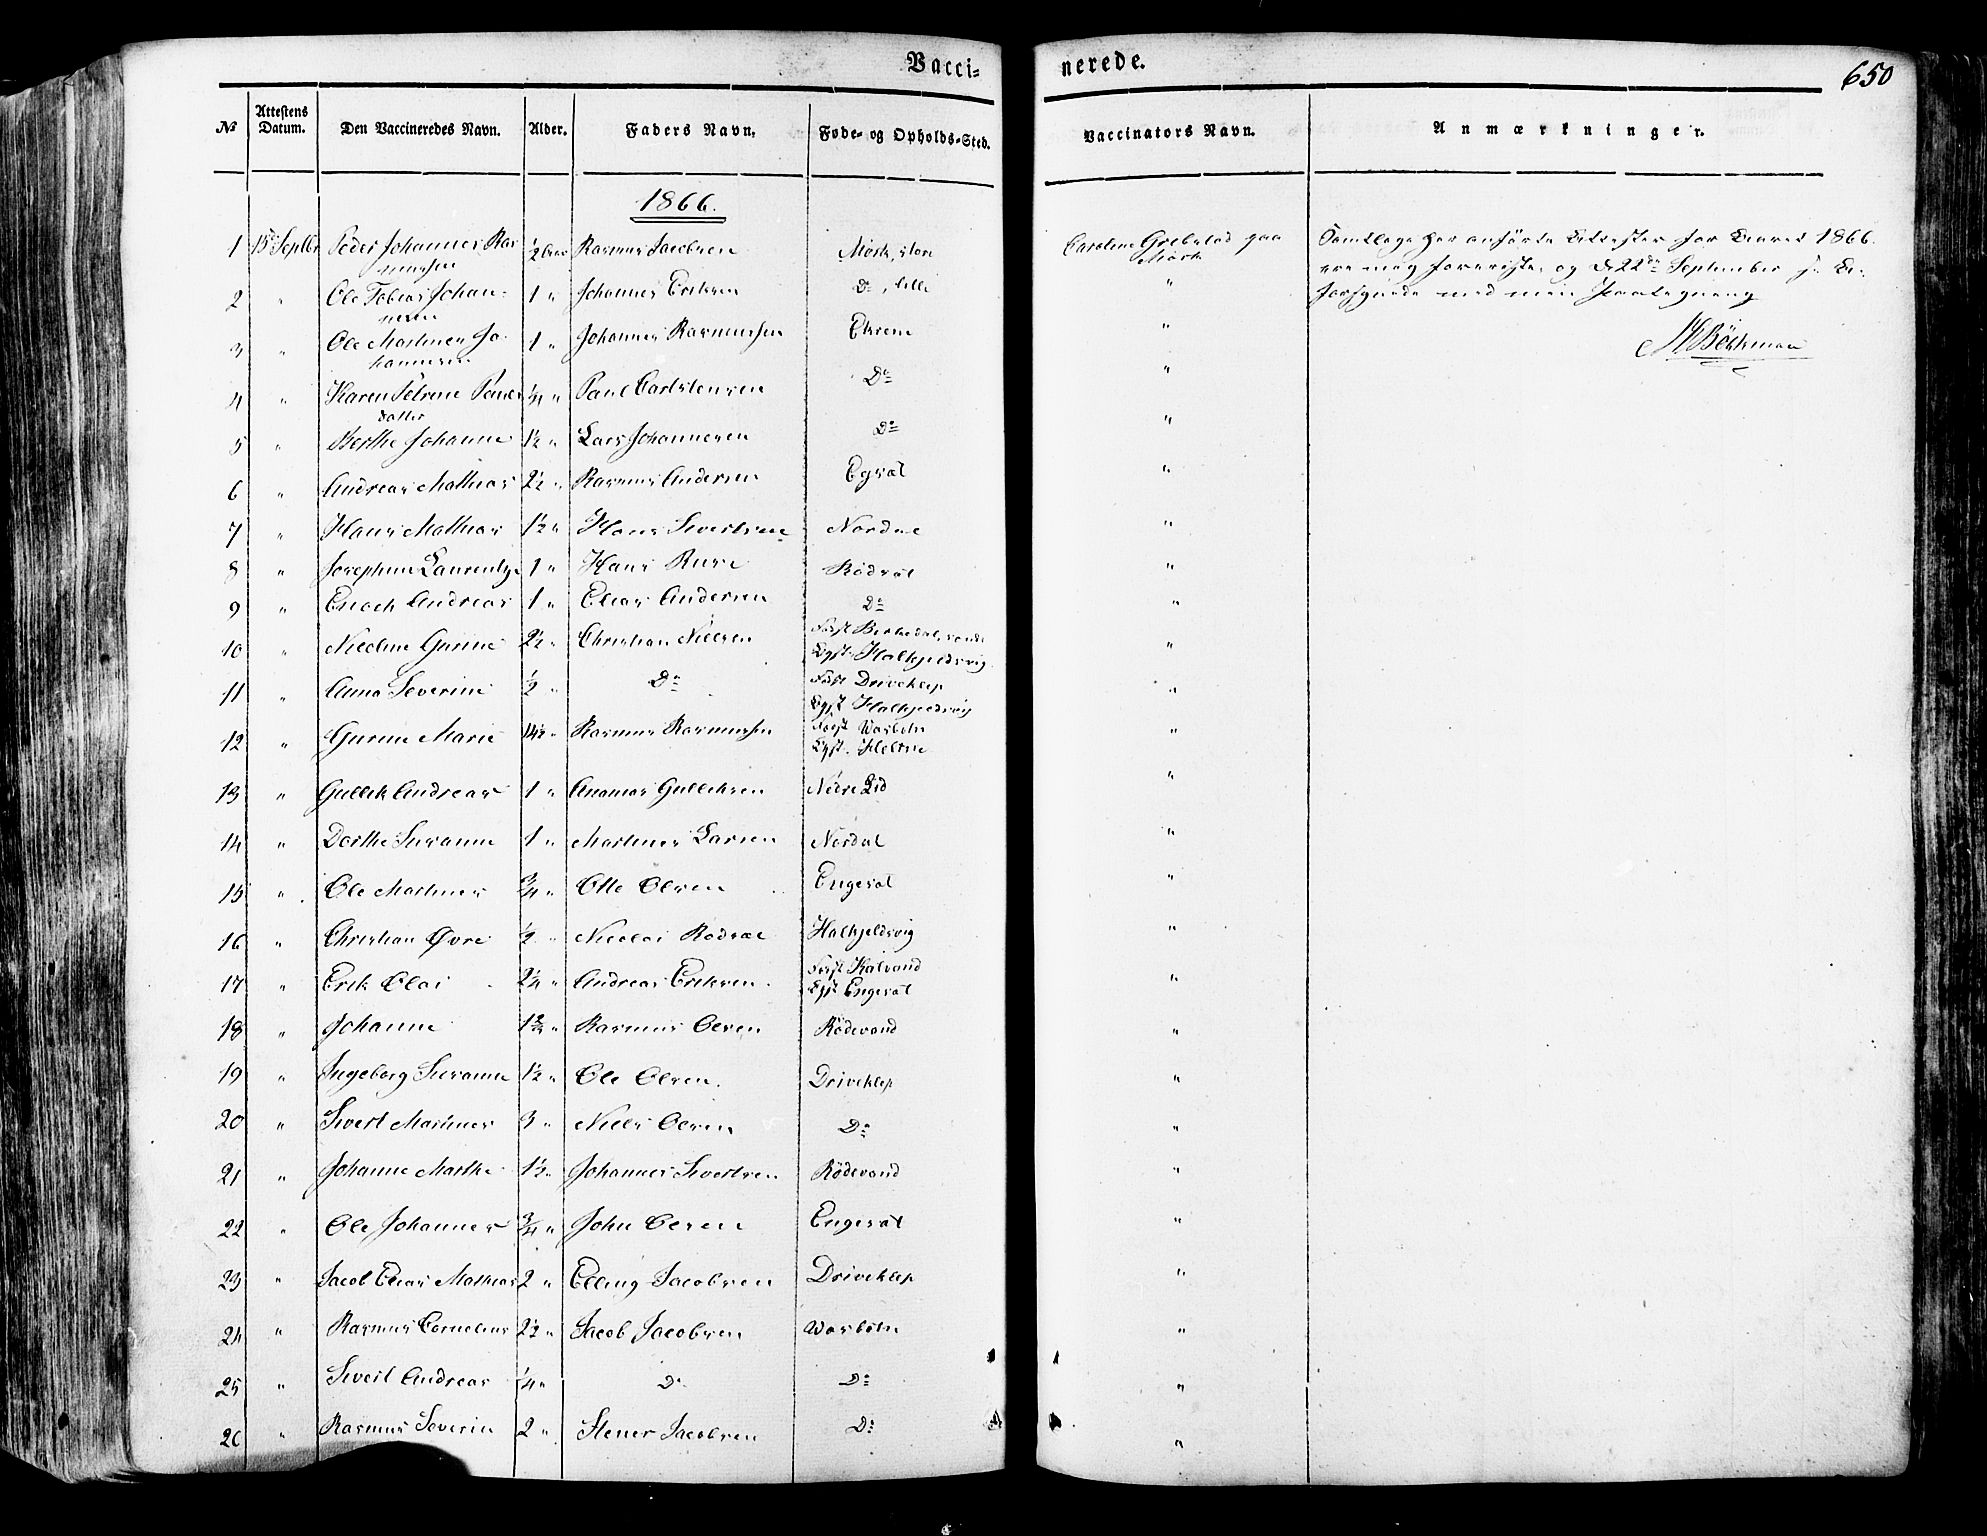 Vacci= nerede. 650
No Attestens Datum. Den Vaccineredes Navn. Alder. Faders Navn. Føde- og Opholds-Sted. Vaccinators Navn. Anmærkninger.
1866.
1 15 Septbr Peder Johannes Ras ½ Rasmus Jacobsen Mørk, store Caroline Grebstad paa Samtlige her anførte Attester for Aaret 1866
mussen Mørk ere mig foreviste, og d 22de September
2 " Ole Tobias Johan- 1 " Johannes Eriksen Do, lille " forsynede med min Paategning
nesen
3 " Ole Martinus Jo- 1 " Johannes Rasmussen Ekrene "
hannesen Bøckman
4 " Karen Petrine Pauls ¼ " Paul Carlstensen Do "
datter
5 " Berthe Johanne 1½ " Lars Johannesen Do "
6 " Andreas Mathias 2½ " Rasmus Andersen Egsæt "
7 " Hans Mathias 1½ " Hans Sivertsen Nordal "
8 " Josephine Laurentze 1 " Hans Ruse Rødsæt "
9 " Enoch Andreas 1 " Elias Andersen Do "
10 " Nicoline Gurine 2½ " Christian Nilsen Født Birkedal, søndre "
Opst. Halkjeldsvig
11 " Anna Severine ½ " Do Født Driveklep "
Opst Halkjeldsvig
12 " Gurine Marie 1½ " Rasmus Rasmussen Født Vasbotn "
Opst. Heltne
13 " Gullik Andreas 1 " Ananias Gulliksen Nedre Lid "
14 " Dorthe Susanne 1 " Martinus Larsen Nordal "
15 " Ole Martinus ¾ " Otte Olsen Engesæt "
16 " Christian Øvre ½ " Nicolai Rødsæt Halkjeldsvig "
17 " Erik Olai 2¼ " Andreas Eriksen Født Kalvand "
Opst Engesæt
18 " Johanne 1¾ " Rasmus Olsen Rødevand "
19 " Ingeborg Susanne 1½ " Ole Olsen Driveklep "
20 " Sivert Martinus 3 " Niels Olsen Do "
21 " Johanne Marthe 1½ " Johannes Sivertsen Rødevand "
22 " Ole Johannes ¾ " John Olsen Engesæt "
23 " Jacob Elias Mathias 2 " Elling Jacobsen Driveklep "
24 " Rasmus Cornelius 2½ " Jacob Jacobsen Vasbotn "
25 " Sivert Andreas ¼ " Do Do "
26 " Rasmus Severin 2 " Stener Jacobsen Do "